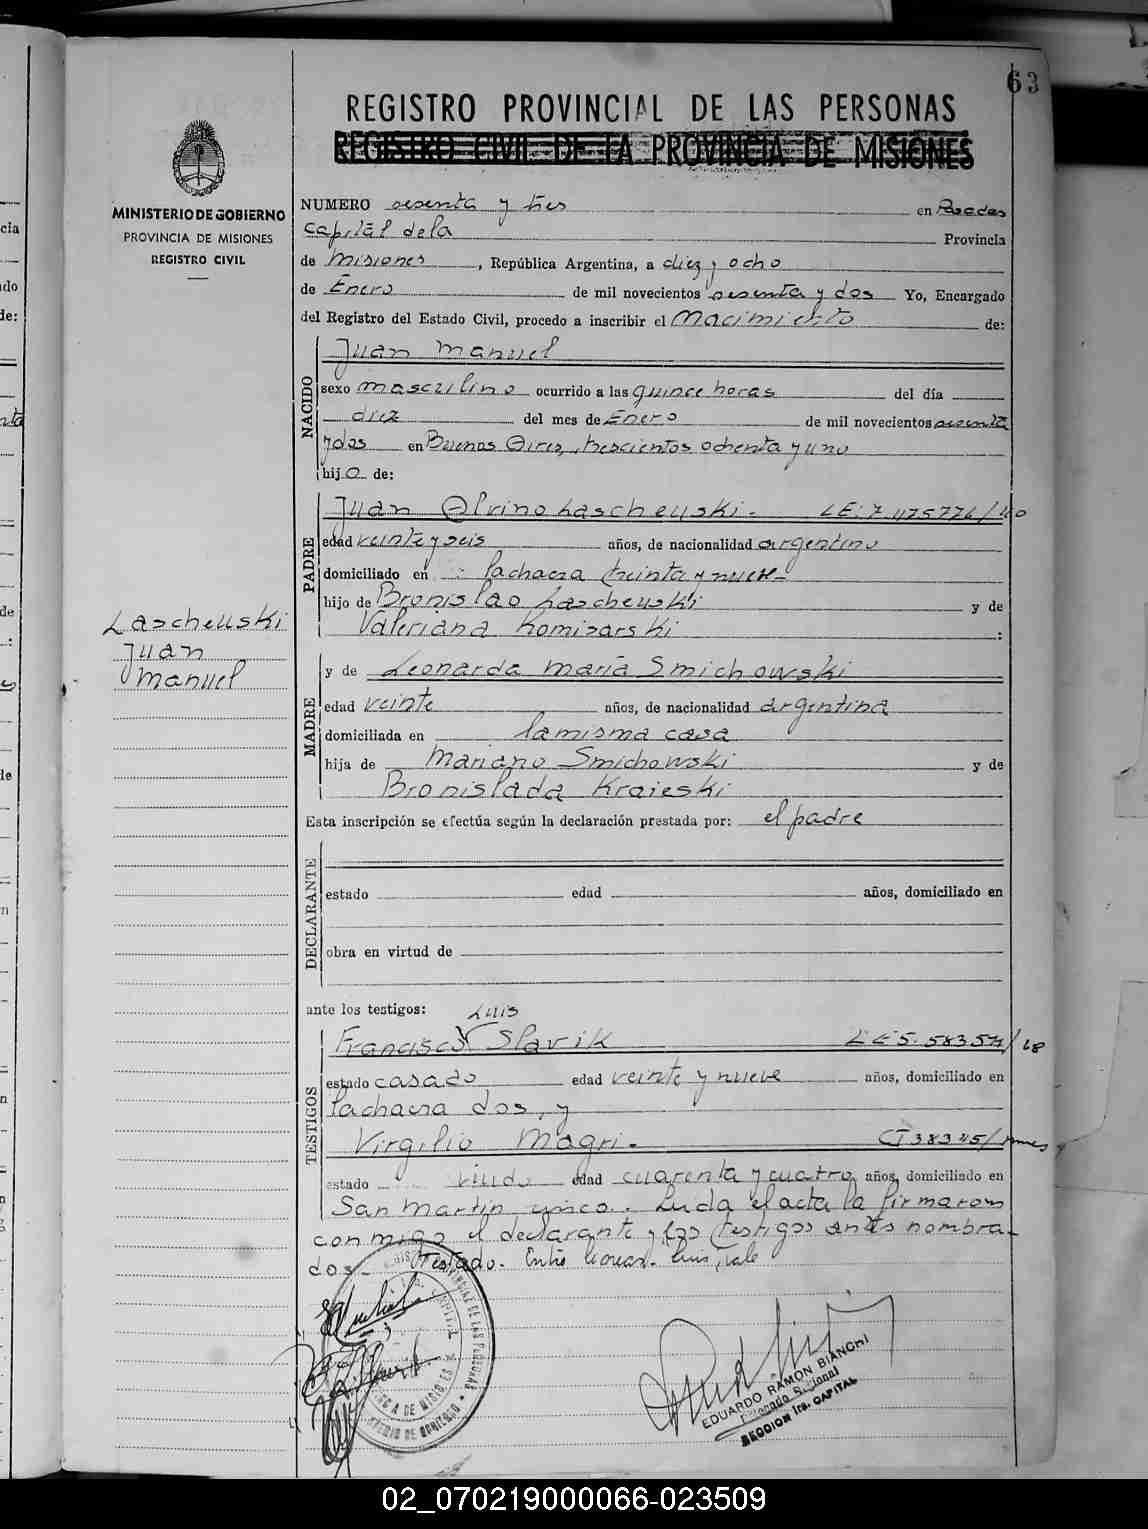 63
REGISTRO PROVINCIAL DE LAS PERSONAS
REGISTRO CIVIL DE LA PROVINCIA DE MISIONES
MINISTERIO DE GOBIERNO
PROVINCIA DE MISIONES
REGISTRO CIVIL
NUMERO sesenta y tres en Posadas
Capital de la Provincia
de Misiones, República Argentina, a diez y ocho
de Enero de mil novecientos sesenta y dos Yo, Encargado
del Registro del Estado Civil, procedo a inscribir el Nacimiento de:
NACIDO
Juan Manuel
sexo masculino ocurrido a las quince horas del día
diez del mes de Enero de mil novecientos sesenta
y dos en Buenos Aires, trescientos ochenta y uno
hijo de:
PADRE
Juan Alvino Lascheuski.- LE: 7.475774/40
edad veinte y seis años, de nacionalidad argentino
domiciliado en : Pachacra treinta y nueve-
hijo de Bronislao Lascheuski y de
Valeriana Komisarski :
Lascheuski
Juan
Manuel
MADRE
y de Leonarda María Smichowski
edad veinte años, de nacionalidad argentina
domiciliada en la misma casa
hija de Mariano Smichowski y de
Bronislada Kraieski
Esta inscripción se efectúa según la declaración prestada por: el padre
DECLARANTE
estado edad años, domiciliado en
obra en virtud de
ante los testigos: Luis
TESTIGOS
Francisco Slavik LE 5.583.571/68
estado casado edad veinte y nueve años, domiciliado en
Pachacra dos, y
Virgilio Magri.- CI 38345/
estado viudo edad cuarenta y cuatro años, domiciliado en
San Martin . Leida el acta la firmaron
conmigo el declarante y los testigos antes nombra-
dos. Testado. Entre lineas. Luis, vale
EDUARDO RAMON BIANCHI
Delegado Seccional
SECCION 1ra. CAPITAL
02_070219000066-023509